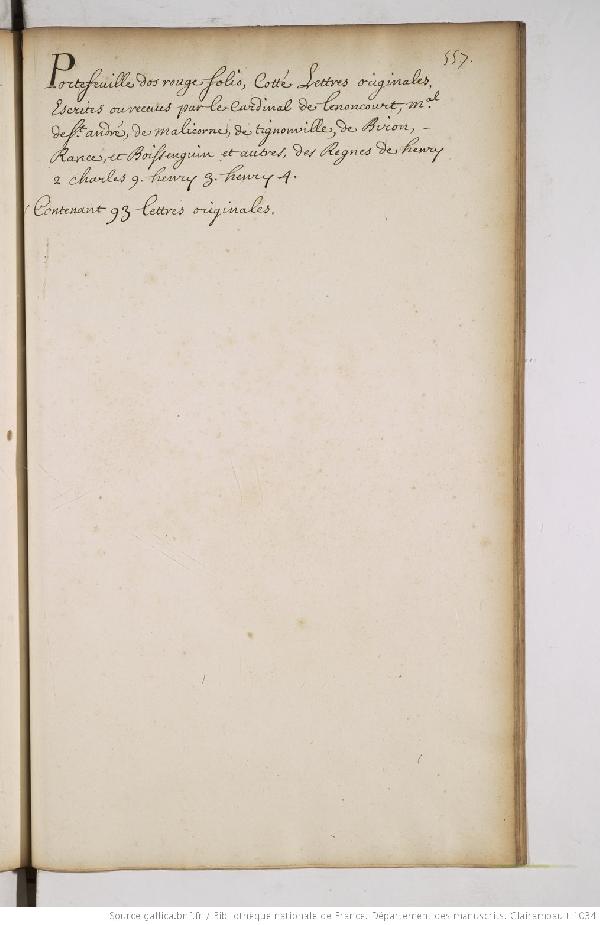 557.
Portefeuille dos rouge folio, Cotté Lettres originales,
Escrites ou receues par le Cardinal de Lenoncourt, m.al
de St. andré, de malicorne, de tignonville, de Biron, -
Rance, et Boissenguin et autres, des Regnes de henry
2 charles 9. henry 3. henry 4.
Contenant 93 lettres originales.
Source gallica.bnf.fr / Bibliothèque nationale de France. Département des manuscrits. Clairambault 1034